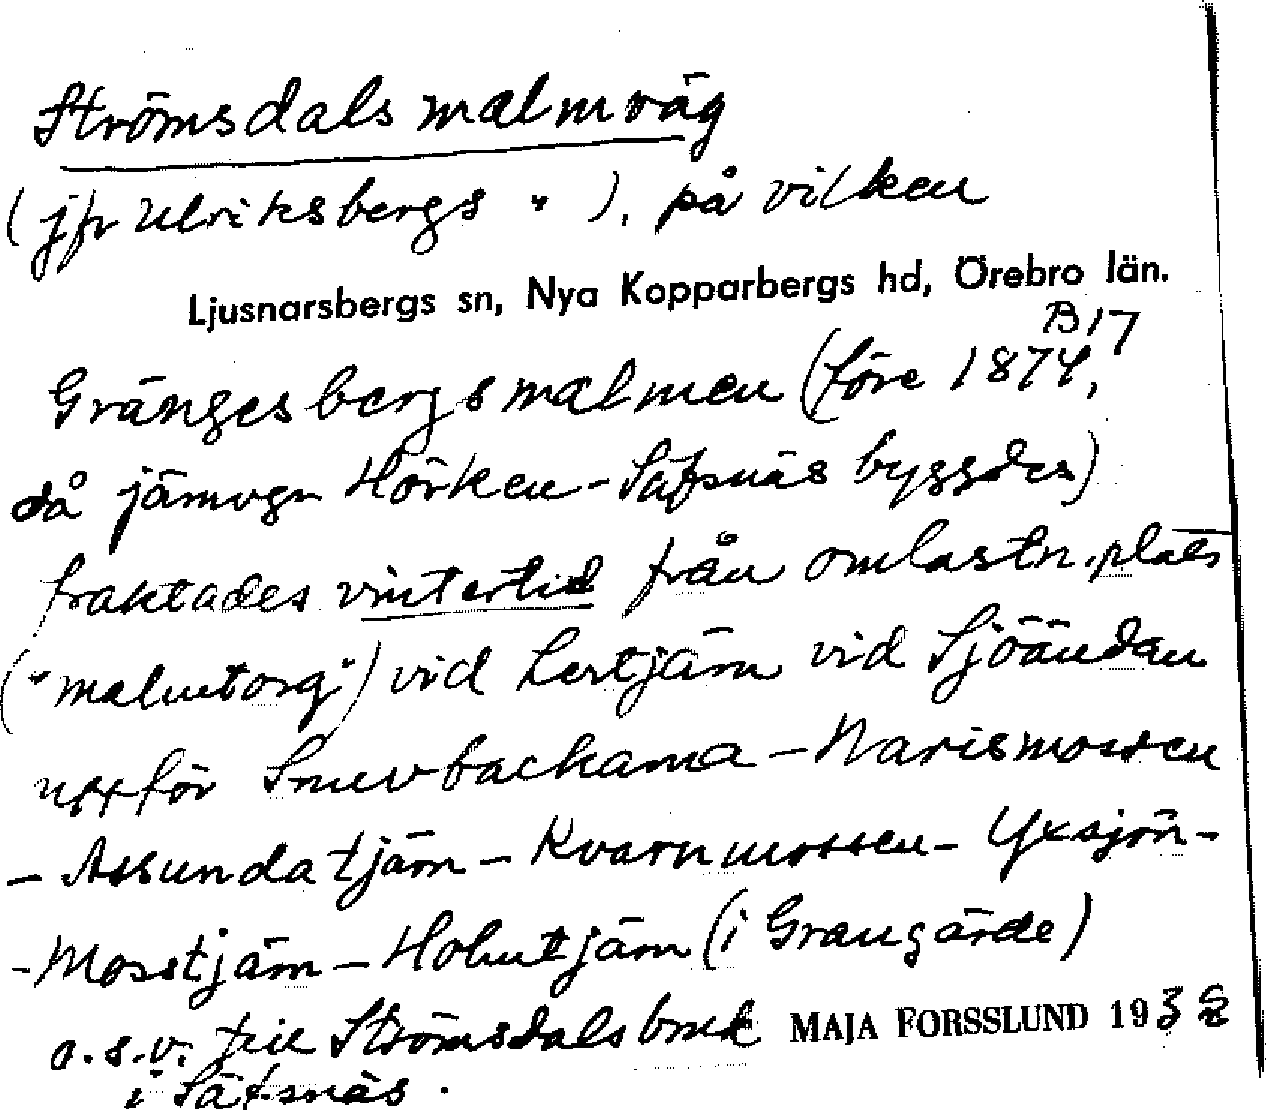 Strömsdals malmväg
(jfr Ulriksbergs " ), på vilken
Ljusnarsbergs sn, Nya Kopparbergs hd, Örebro län.
B17
Grängesbergsmalmen (före 1874,
då järnvgn Hörken-Säfsnäs byggdes)
fraktades vintertid från omlastn.plats
("malmtorg") vid Lertjärn vid Sjöändan
uppför Snuvbackarna - Narismossen
- Assundatjärn - Kvarnmossen - Yxsjön -
- Mosstjärn - Holmtjärn (i Grangärde)
o.s.v. till Strömsdals bruk MAJA FORSSLUND 193
i Säfsnäs.